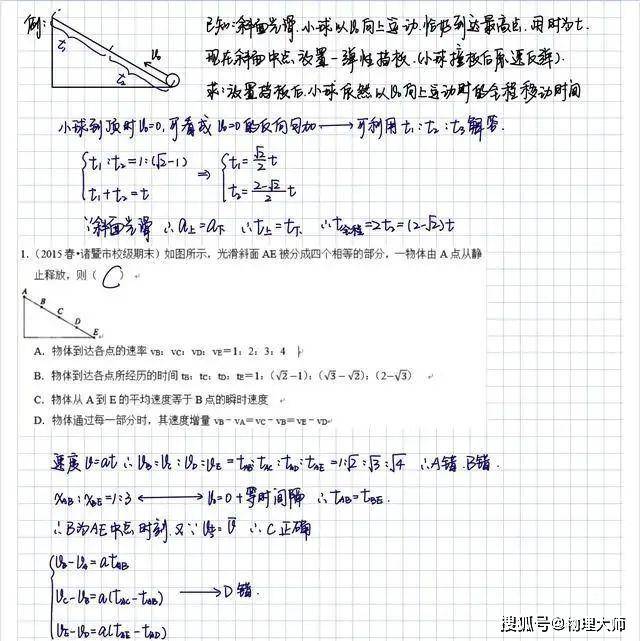 例:
已知:斜面光滑.小球以v₀向上运动.恰好到达最高点.用时为t.
现在斜面中点放置一弹性挡板.(小球撞板后原速反弹).
求:放置挡板后.小球依然以v₀向上运动时的全程移动时间
t₁ t₂ v₀
小球到顶时v₀=0,可看成v₀=0的反向匀加 → 可利用t₁:t₂:t₃解答.
{t₁:t₂=1:(√2-1) ⇒ {t₁=√2/2 t
t₁+t₂=t t₂=(2-√2)/2 t
∵斜面光滑 ∴a上=a下 ∴t上=t下 ∴t全程=2t₂=(2-√2)t
1.(2015春•诸暨市校级期末)如图所示,光滑斜面 AE 被分成四个相等的部分,一物体由 A 点从静
止释放,则( C )
A B C D E
A. 物体到达各点的速率 vB:vC:vD:vE=1:2:3:4
B. 物体到达各点所经历的时间 tB:tC:tD:tE=1:(√2-1):(√3-√2):(2-√3)
C. 物体从 A 到 E 的平均速度等于 B 点的瞬时速度
D. 物体通过每一部分时,其速度增量 vB-vA=vC-vB=vE-vD
速度v=at ∴vB:vC:vD:vE=tAB:tAC:tAD:tAE=1:√2:√3:√4 ∴A错.B错.
xAB:xBE=1:3 ↔ v₀=0+等时间隔 ∴tAB=tBE.
∴B为AE中点时刻.又∵ ∴C正确
{vB-vA=atAB
vC-vB=a(tAC-tAB) → D错.
vE-vD=a(tAE-tAD)
搜狐号@物理大师